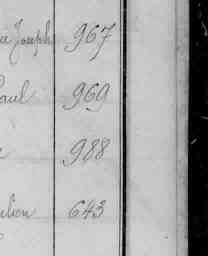 Joseph 967
Paul 969
988
643